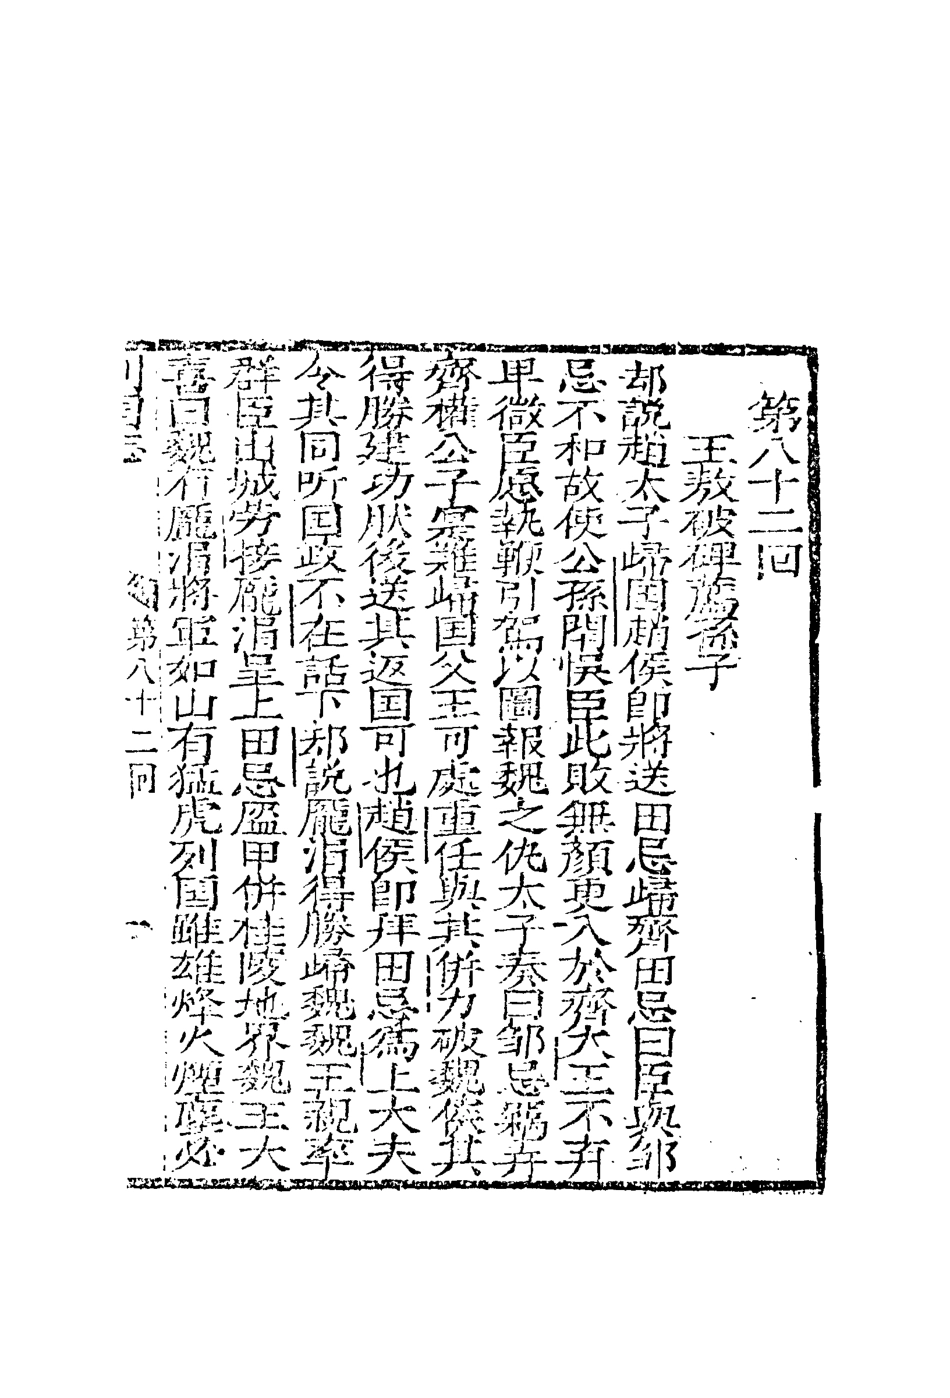 第八十二回
王敖破碑薦孫子
却説趙太子歸国趙侯即將送田忌歸齊田忌曰臣與邹
忌不和故使公孫閈悞臣此敗無顔更入於齊大王不弃
卑微臣愿執鞭引駕以圖報魏之仇太子奏曰邹忌竊弄
齊權公子寔難歸国父王可處重任與其併力破魏俟其
得勝建功肰後送其返国可也趙侯即拜田忌爲上大夫
令其同听国政不在話下却説龐涓得勝歸魏魏王親率
群臣出城劳接龐涓呈上田忌盔甲併桂陵地界魏王大
喜曰魏有龐涓將軍如山有猛虎列国雖雄烽火煙塵必
列国志
第八十二回
一